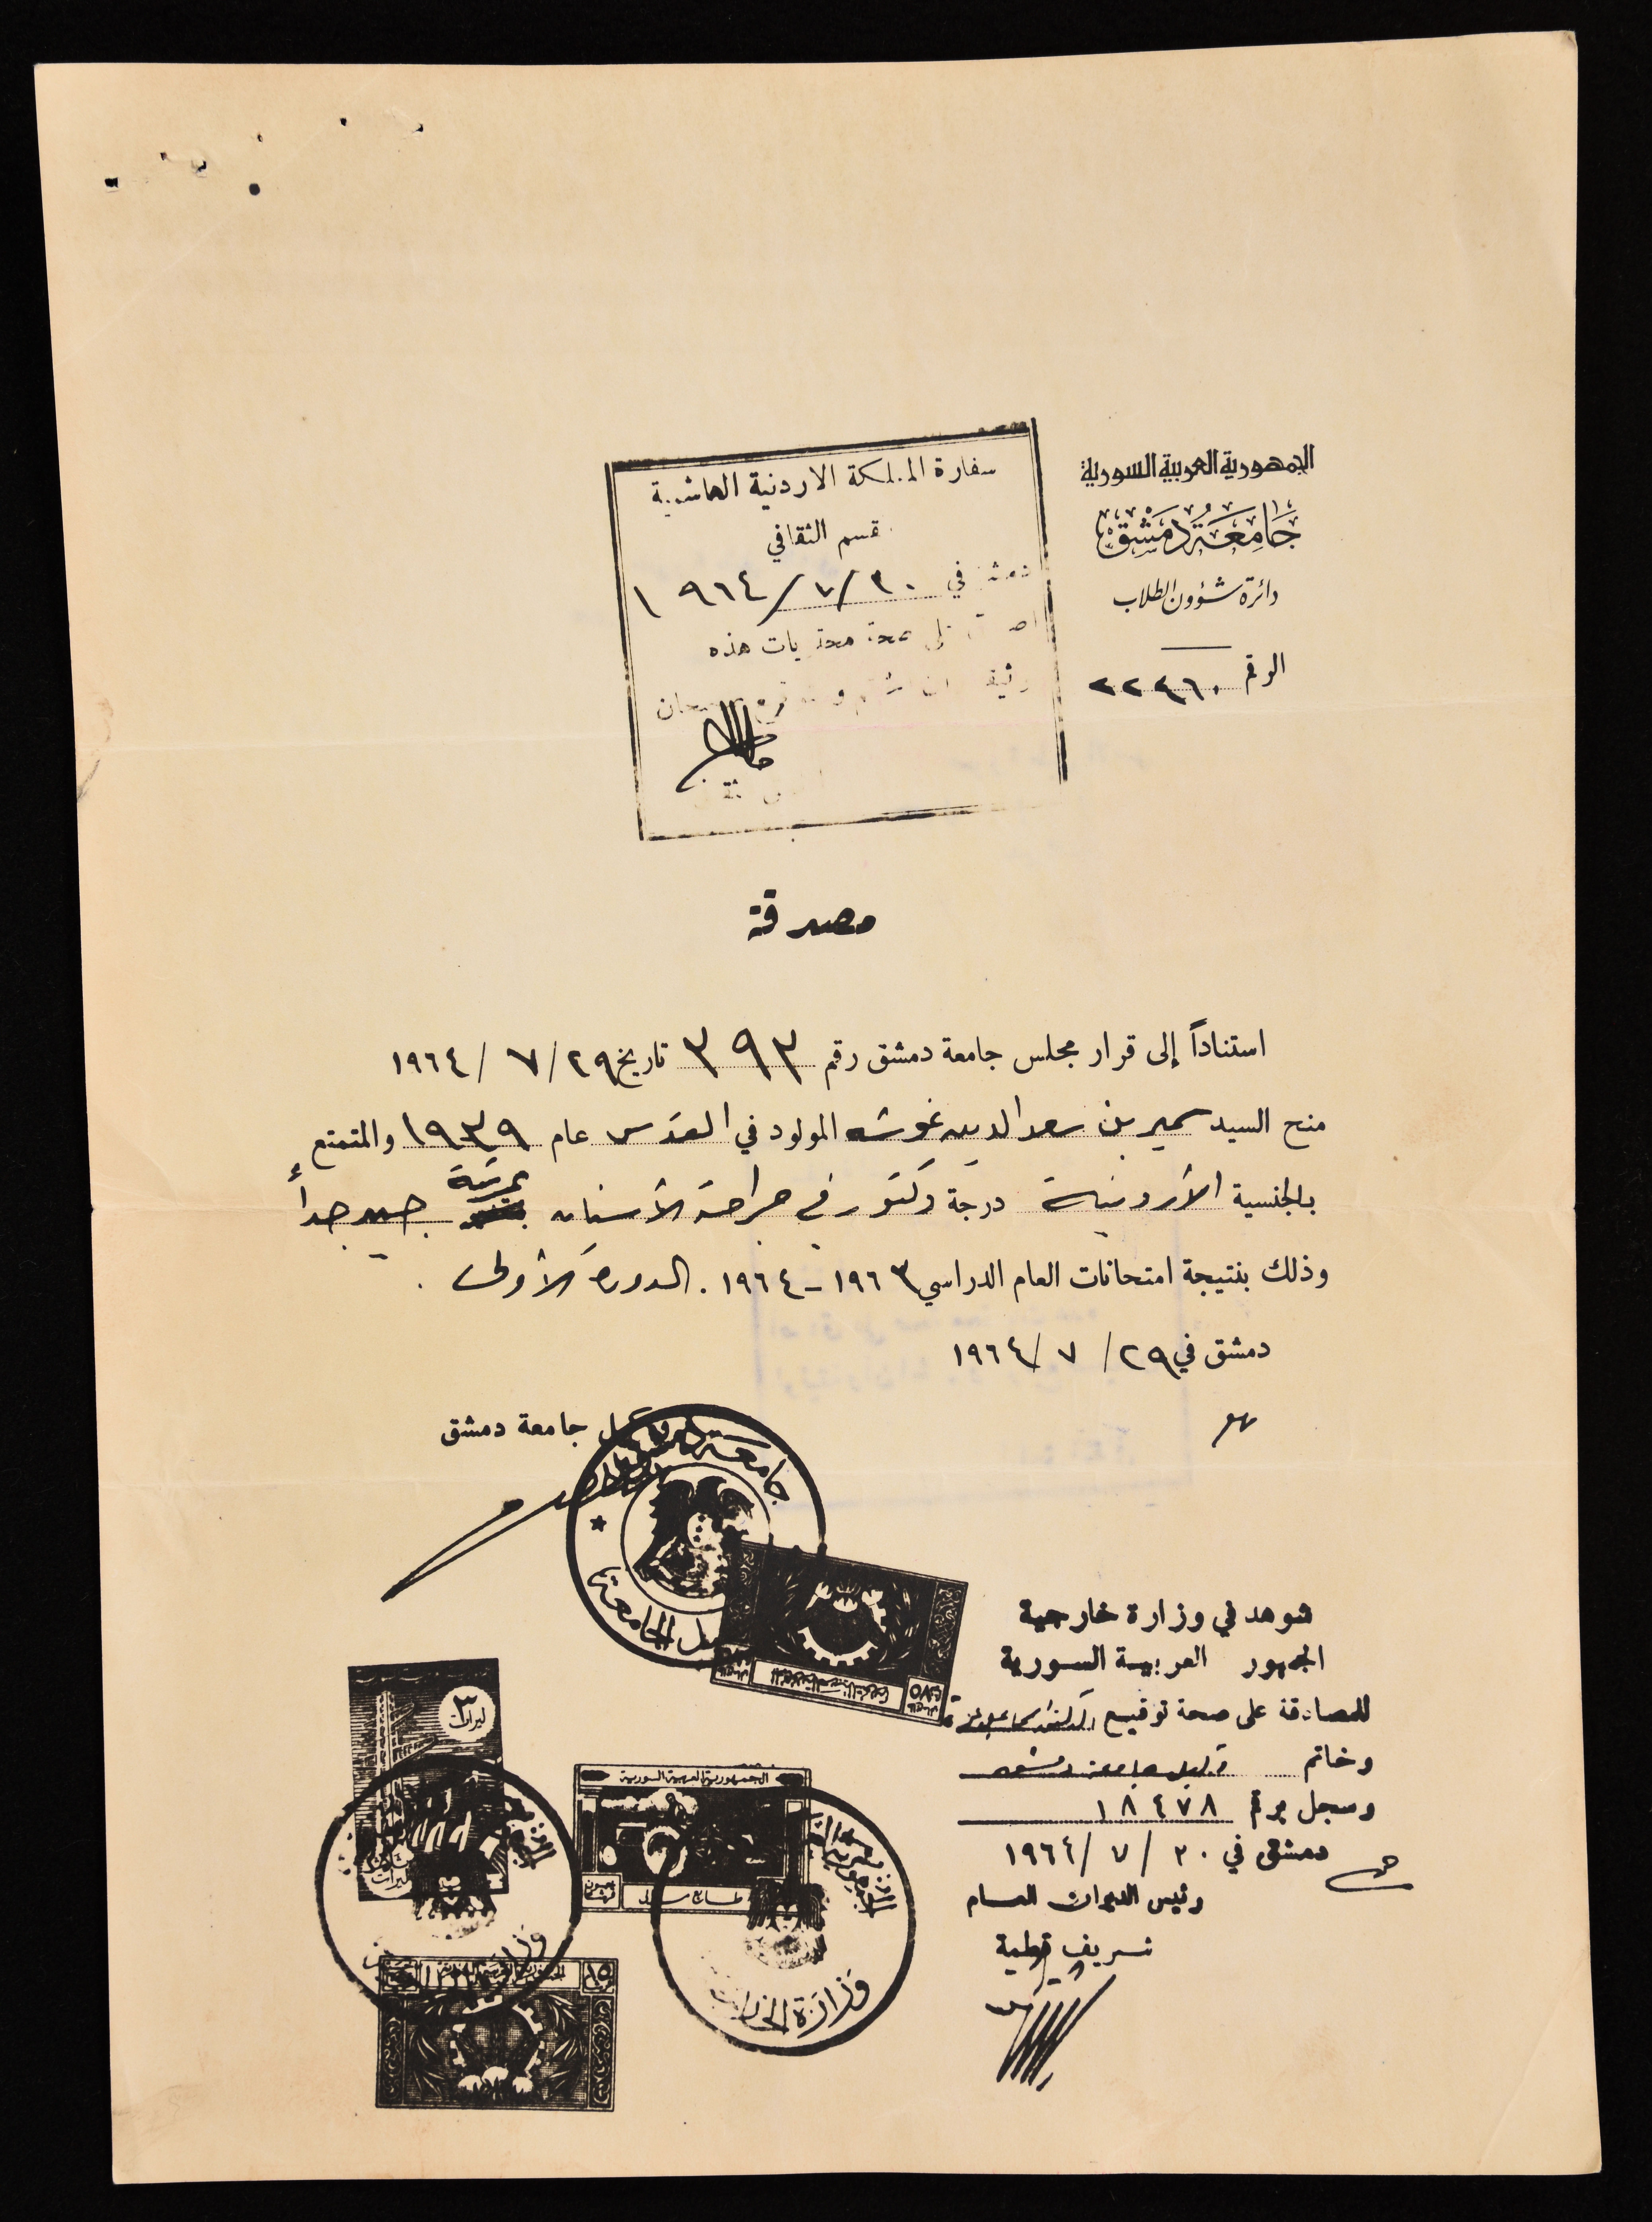 الجمهورية العربية السورية
جَامِعَة دِمَشْق
دائرة شؤون الطلاب
الرقم ٢٢٤٦٠
سفارة المملكة الاردنية الهاشمية
قسم الثقافي
دمشق في ٣٠/٧/١٩٦٤
صحة محتويات هذه
مصدقة
استناداً إلى قرار مجلس جامعة دمشق رقم ٣٩٣ تاريخ ٢٩/٧/١٩٦٤
منح السيد سمير بن سعد الدين غوشه المولود في القدس عام ١٩٣٩ والمتمتع
بالجنسية الأردنية درجة دكتور في جراحة الأسنان بمرتبة جيد جداً
وذلك بنتيجة امتحانات العام الدراسي ١٩٦٣-١٩٦٤. الدورة الأولى.
دمشق في ٢٩/٧/١٩٦٤
وكيل جامعة دمشق
جامعة دمشق
وكيل الجامعة
شوهد في وزارة خارجية
الجمهور العربية السورية
للمصادقة على صحة توقيع
وخاتم وكيل جامعة دمشق
وسجل برقم ١٨٤٧٨
دمشق في ٣٠/٧/١٩٦٤
رئيس الديوان العام
شريف قطية
٣
ليرات
الجمهورية العربية السورية
طابع مالي
وزارة الخارجية
١٥